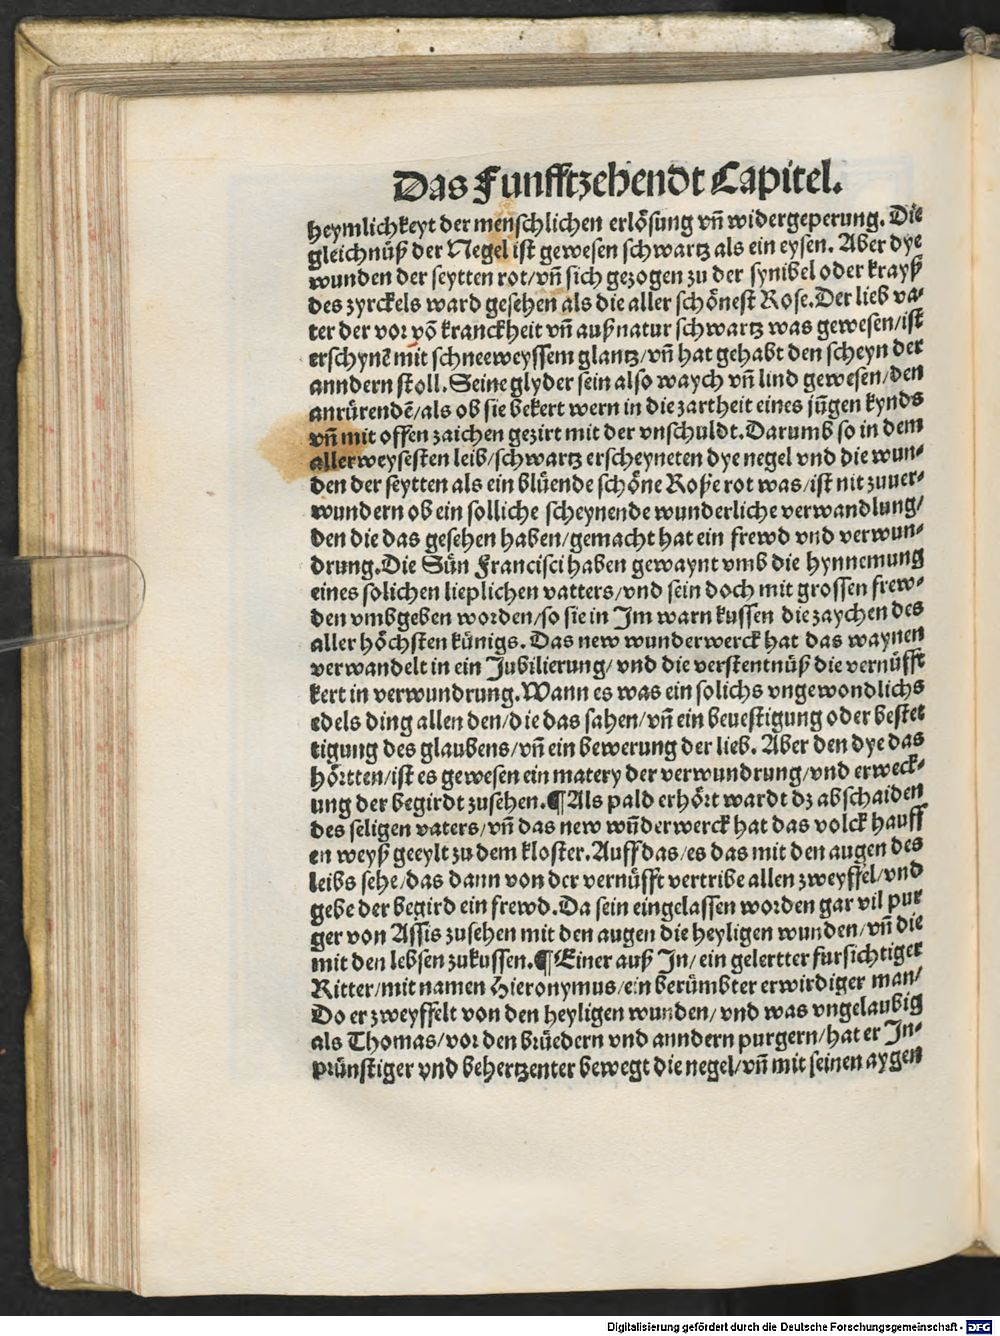 Das Funfftzehendt Capitel.
heymlichkeyt der menschlichen erlösung vn̄ widergeperung. Die
gleichnüß der Negel ist gewesen schwartz als ein eysen. Aber dye
wunden der seytten rot/vn̄ sich gezogen zu der synibel oder krayß
des zyrckels ward gesehen als die aller schönest Rose. Der lieb va⸗
ter der vor vō kranckheit vn̄ auß natur schwartz was gewesen/ist
erschynē mit schneeweyssem glantz/vn̄ hat gehabt den scheyn der
anndern stoll. Seine glyder sein also waych vn̄ lind gewesen/den
anrürendē/als ob sie bekert wern in die zartheit eines jūgen kynds
vn̄ mit offen zaichen gezirt mit der vnschuldt. Darumb so in dem
allerweysesten leib/schwartz erscheyneten dye negel vnd die wun⸗
den der seytten als ein blüende schöne Roße rot was/ist nit zuuer⸗
wundern ob ein solliche scheynende wunderliche verwandlung/
den die das gesehen haben/gemacht hat ein frewd vnd verwun⸗
drung. Die Sün Francisci haben gewaynt vmb die hynnemung
eines solichen lieplichen vatters/vnd sein doch mit grossen frew⸗
den vmbgeben worden/so sie in Im warn kussen die zaychen des
aller höchsten künigs. Das new wunderwerck hat das waynen
verwandelt in ein Jubilierung/vnd die verstentnüß die vernüfft
kert in verwundrung. Wann es was ein solichs vngewondlichs
edels ding allen den/die das sahen/vn̄ ein beuestigung oder bestet
tigung des glaubens/vn̄ ein bewerung der lieb. Aber den dye das
hörtten/ist es gewesen ein matery der verwundrung/vnd erweck⸗
ung der begirdt zusehen. ¶ Als pald erhört wardt dz abschaiden
des seligen vaters/vn̄ das new wūderwerck hat das volck hauff
en weyß geeylt zu dem kloster. Auff das/es das mit den augen des
leibs sehe/das dann von der vernüfft vertribe allen zweyffel/vnd
gebe der begird ein frewd. Da sein eingelassen worden gar vil pur
ger von Assis zusehen mit den augen die heyligen wunden/vn̄ die
mit den lebsen zukussen. ¶ Einer auß In/ein gelertter fursichtiger
Ritter/mit namen Hieronymus/ein berümbter erwirdiger man/
Do er zweyffelt von den heyligen wunden/vnd was vngelaubig
als Thomas/vor den brüedern vnd anndern purgern/hat er In⸗
prünstiger vnd behertzenter bewegt die negel/vn̄ mit seinen aygen
Digitalisierung gefördert durch die Deutsche Forschungsgemeinschaft - DFG